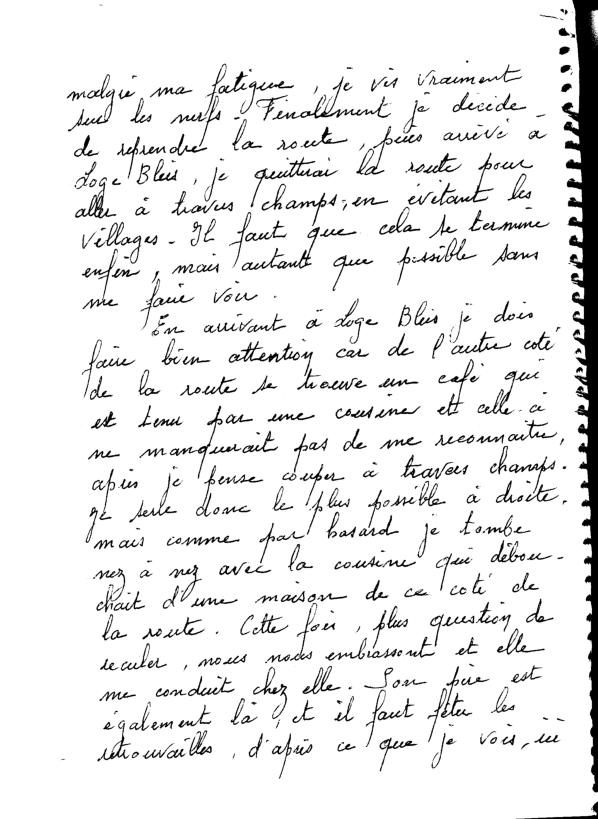 malgré ma fatigue, je vis vraiment
sur les nerfs. Finalement je décide
de reprendre la route, puis arrivé à
Loge Bleis, je quitterai la route pour
aller à travers champs, en évitant les
villages. Il faut que cela se termine
enfin, mais autant que possible sans
me faire voir.
En arrivant à Loge Bleis je dois
faire bien attention car de l'autre coté
de la route se trouve un café qui
est tenu par une cousine et celle-ci
ne manquerait pas de me reconnaitre,
après je pense couper à travers champs.
Je serre donc le plus possible à droite,
mais comme par hasard je tombe
nez à nez avec la cousine qui débou-
chait d'une maison de ce coté de
la route. Cette fois, plus question de
reculer, nous nous embrassont et elle
me conduit chez elle. Son père est
également là, et il faut fêter les
retrouvailles, d'après ce que je vois, ici